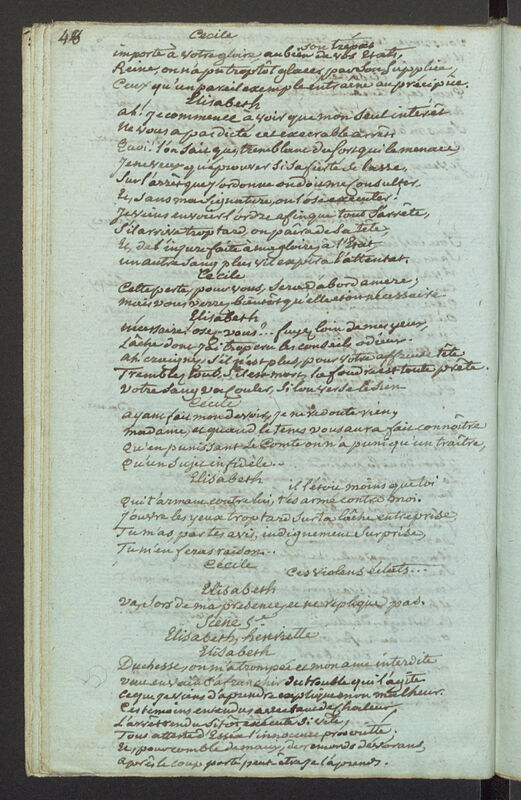 48
Cecile
son trépas
importe à votre gloire au bien de vos Etats,
Reine, on n'a pu trop tôt glacer par son supplice,
Ceux qu'un pareil exemple entraine au précipice.
Elisabeth
ah! je commence à voir que mon seul intérêt
Ne vous a pas dicté cet execrable arret
Quoi! l'on sait que, tremblant du sort qui le menace
Je ne veux qu'éprouver si sa fierté se lasse,
Sur l'arrêt que j'ordonne on doit me consulter
Et, sans ma signature, on l'ose executer!
Je viens envoier l'ordre afin que tout s'arrête,
S'il arrive trop tard, on paira de sa tête,
Et, de l'injure faite à ma gloire, à l'Etat
un autre sang plus vil expira l'attentat.
Cecile
Cette perte, pour vous, sera d'abord amere;
mais vous verrez bientôt qu'elle etoit necessaire
Elisabeth
necessaire, osez-vous?.. fuyez loin de mes yeux,
Lâche dont j'ai trop cru les conseils odieux.
Ah craignez, s'il n'est plus, pour votre affreuse tête
Tremblez, tout. s'il en mort, la foudre est toute prête.
Votre sang va couler, si l'on verse le sien
Cecile
ayant fait mon devoir, je ne redoute rien,
madame, et quand le tems vous aura fait connoître
Qu'en punissant le Comte on n'a puni qu'un traître,
Qu'un sujet infidèle..
Elisabeth
il l'étoit moins que toi
Qui t'armant contre lui, t'es armé contre moi.
J'ouvre les yeux trop tard sur ta lâche entreprise
Tu m'as par tes avis, indignement surprise,
Tu m'en feras raison...
Cecile
Ces violens éclats...
Elisabeth
Va, sors de ma présence, et ne replique pas.
Scène 5e
Elisabeth, henriette
Elisabeth
Duchesse, on m'a trompée et mon ame interdite
veut en vain s'affranchir du trouble qui l'agite
Ce que je viens d'aprendre explique mon malheur.
Ces témoins entendus avec tant de chaleur,
L'arrêt rendu si tôt executé si vite,
Tout atteste d'Essex l'innocence proscrite;
Et, pour comble de maux, des remords devorans,
après le coup porté peut être je l'aprends.